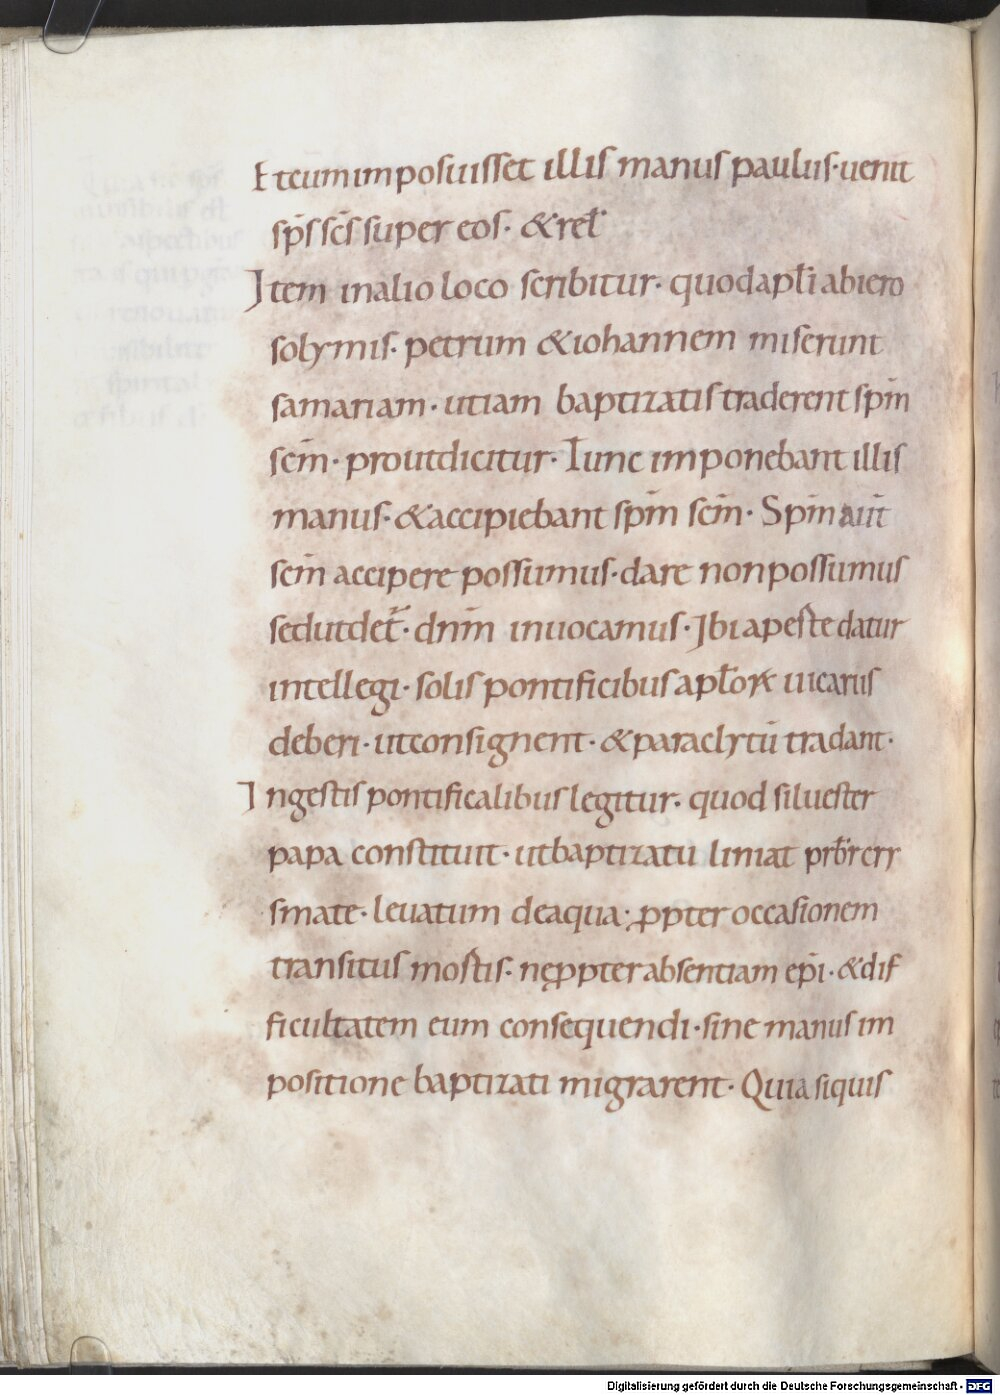 Et cum imposuisset illis manus paulus· uenit
sp̄s sc̄s super eos· & rel̄
Item in alio loco scribitur· quod apl̄i ab iero
solymis· petrum & iohannem miserunt
samariam· ut iam baptizatis traderent sp̄m
sc̄m· prout dicitur· Tunc imponebant illis
manus· & accipiebant sp̄m sc̄m· Sp̄m aut̄
sc̄m accipere possumus· dare non possumus
sed ut det̄· dn̄m inuocamus· Ibi apeste datur
intellegi· solis pontificibus apl̄oꝝ uicariis
deberi· ut consignent· & paraclytū tradant·
In gestis pontificalibus legitur· quod siluester
papa constituit· ut baptizatū liniat prb̄r cri
smate· leuatum de aqua· ꝓpter occasionem
transitus mostis· ne ꝓpter absentiam ep̄i· & dif
ficultatem eum consequendi· sine manus im
positione baptizati migrarent· Quia siquis
Digitalisierung gefördert durch die Deutsche Forschungsgemeinschaft - DFG